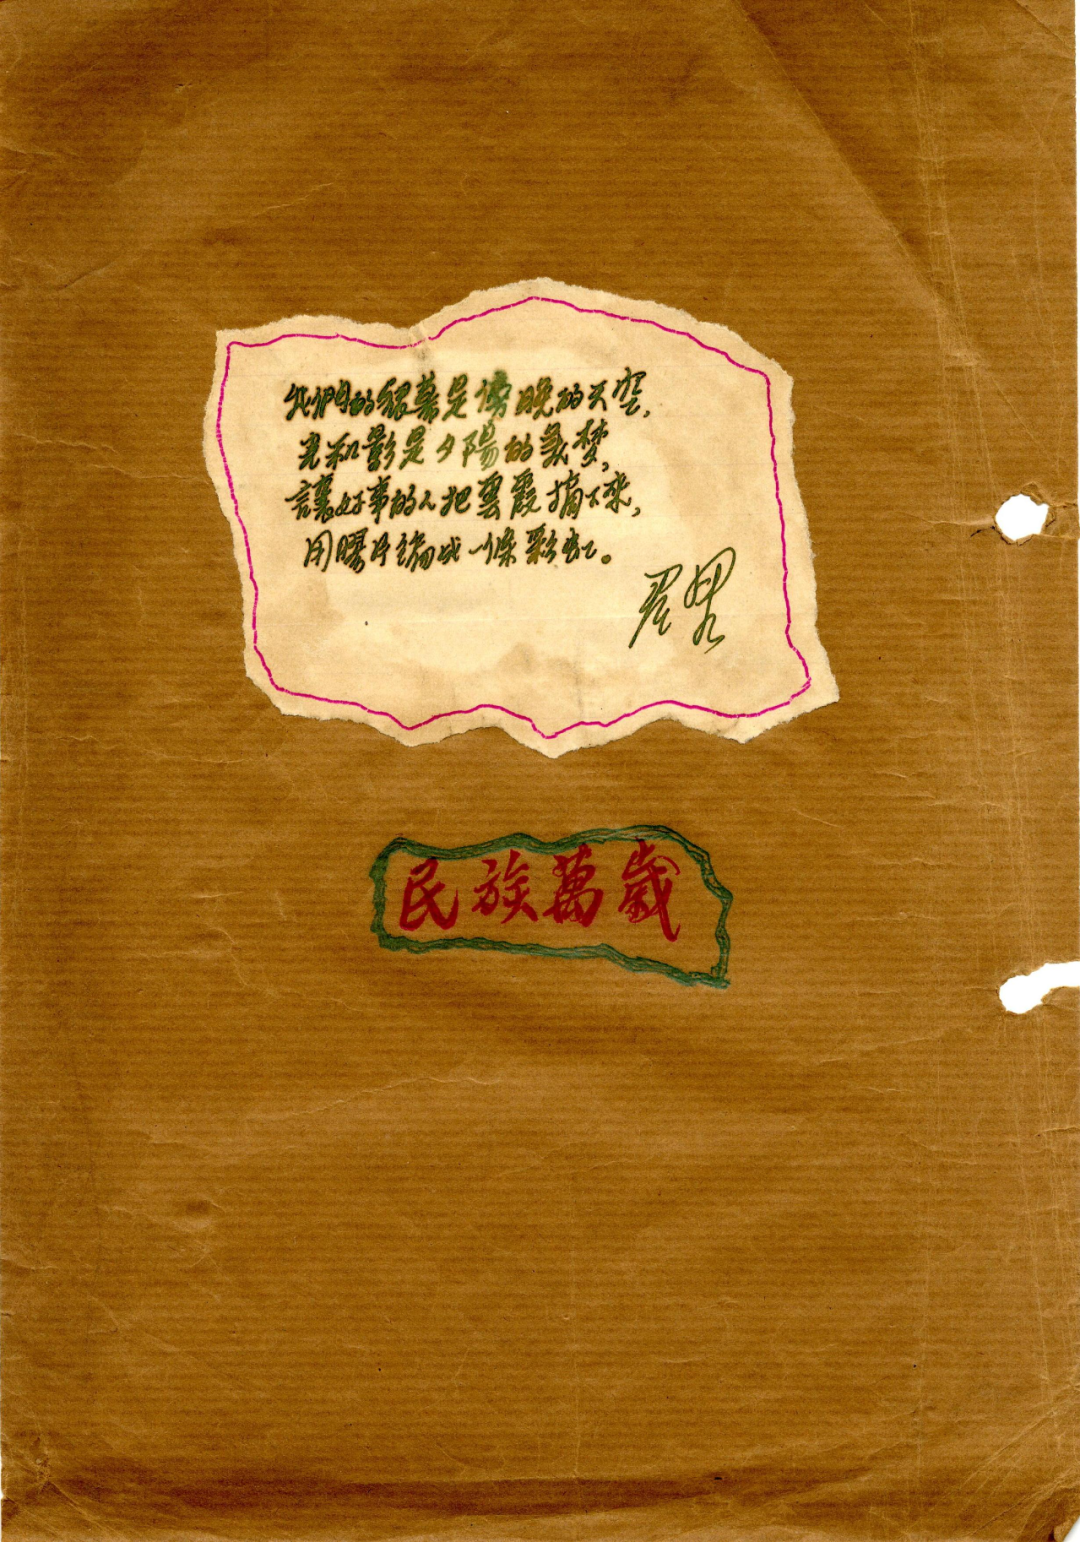 我們的銀幕是傍晚的天空，
光和影是夕陽的美梦，
讓好事的人把雲霞摘下來，
用膠片編成一條彩虹。
民族萬歲